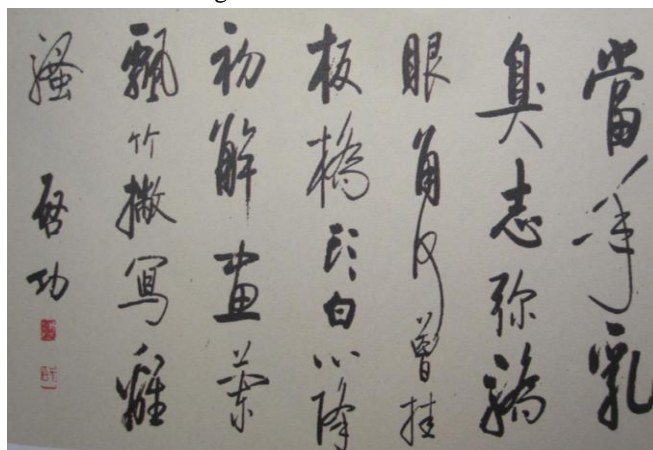 當年乳
臭志弥驕
眼角何曾挂
板橋頭白心降
初解畫蘭
飄竹撇寫離
騷 啓功